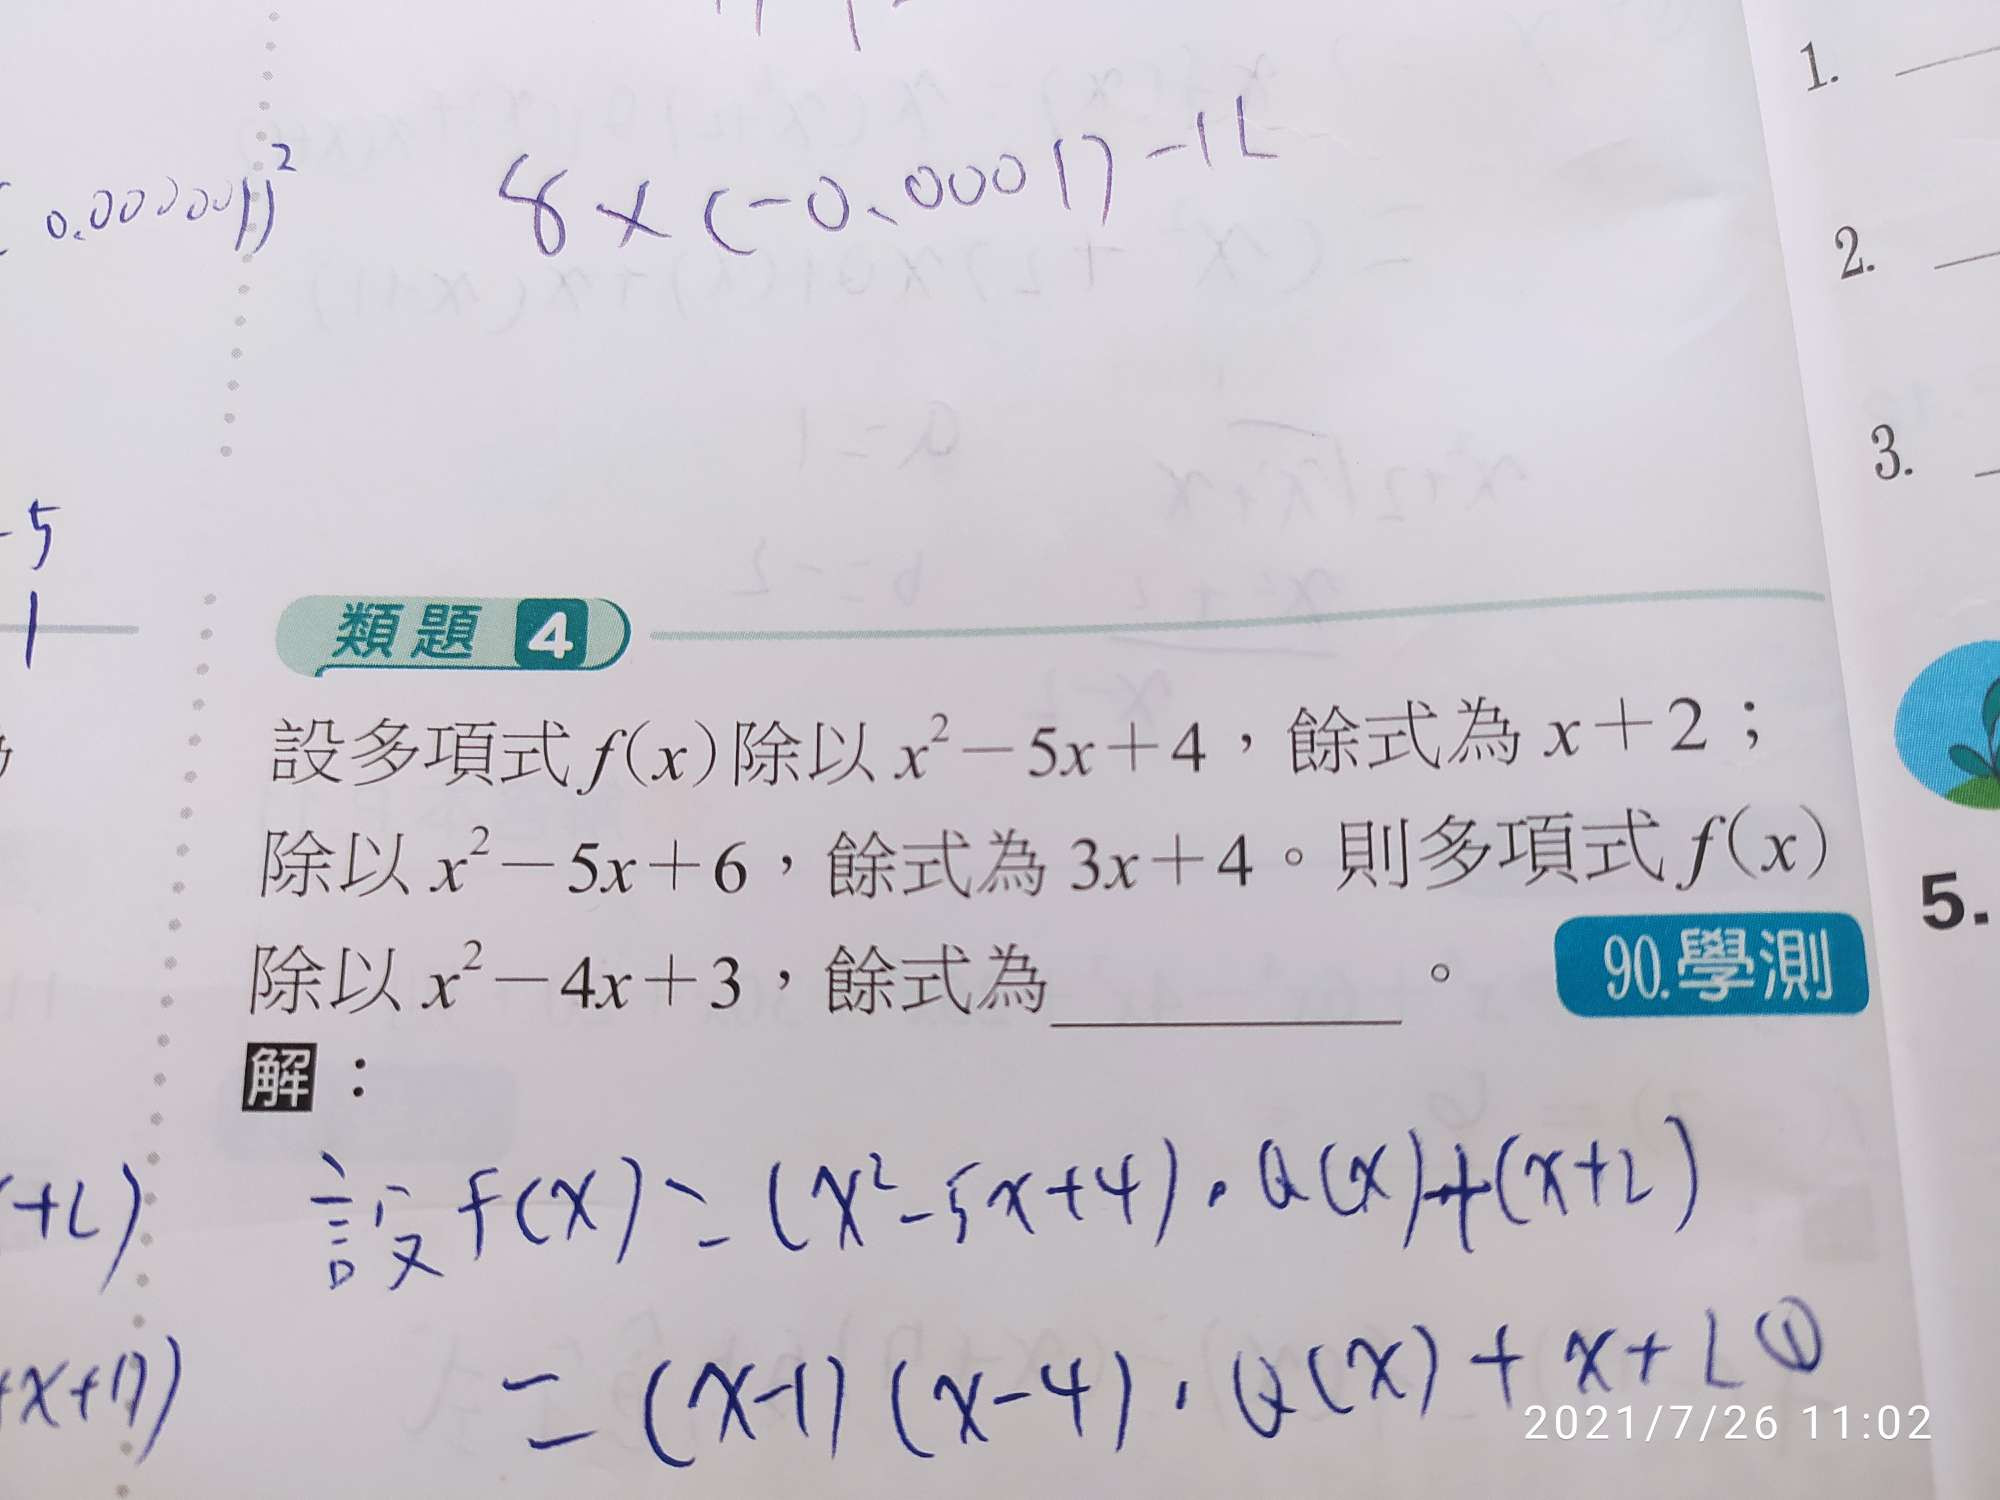 0.00000 1)²
8 × (-0.0001) -12
1.
2.
3.
-5
1
類題 4
設多項式 f(x) 除以 x² − 5x + 4，餘式為 x + 2；
除以 x² − 5x + 6，餘式為 3x + 4。則多項式 f(x)
除以 x² − 4x + 3，餘式為________。 90.學測
5.
解：
設 f(x) = (x² - 5x + 4)·Q(x) + (x+2)
+2)
= (x-1)(x-4)·Q(x) + x+2 ①
+x+17)
2021/7/26 11:02